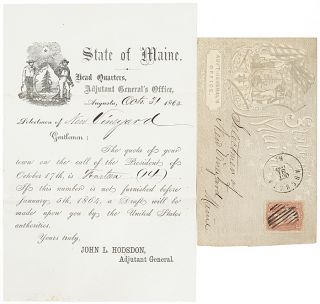 State of Maine.
Head Quarters,
Adjutant General's Office,
Augusta, Oct. 31 1863
Selectmen of New Vineyard
Gentlemen:
The quota of your
town on the call of the President of
October 17th, is Fourteen (14)
If this number is not furnished before
January 5th, 1864, a Draft will be
made upon you by the United States
authorities.
Yours truly,
JOHN L. HODSDON,
Adjutant General.
ADJT. GENERAL'S
OFFICE
Selectmen of
New Vineyard
Maine